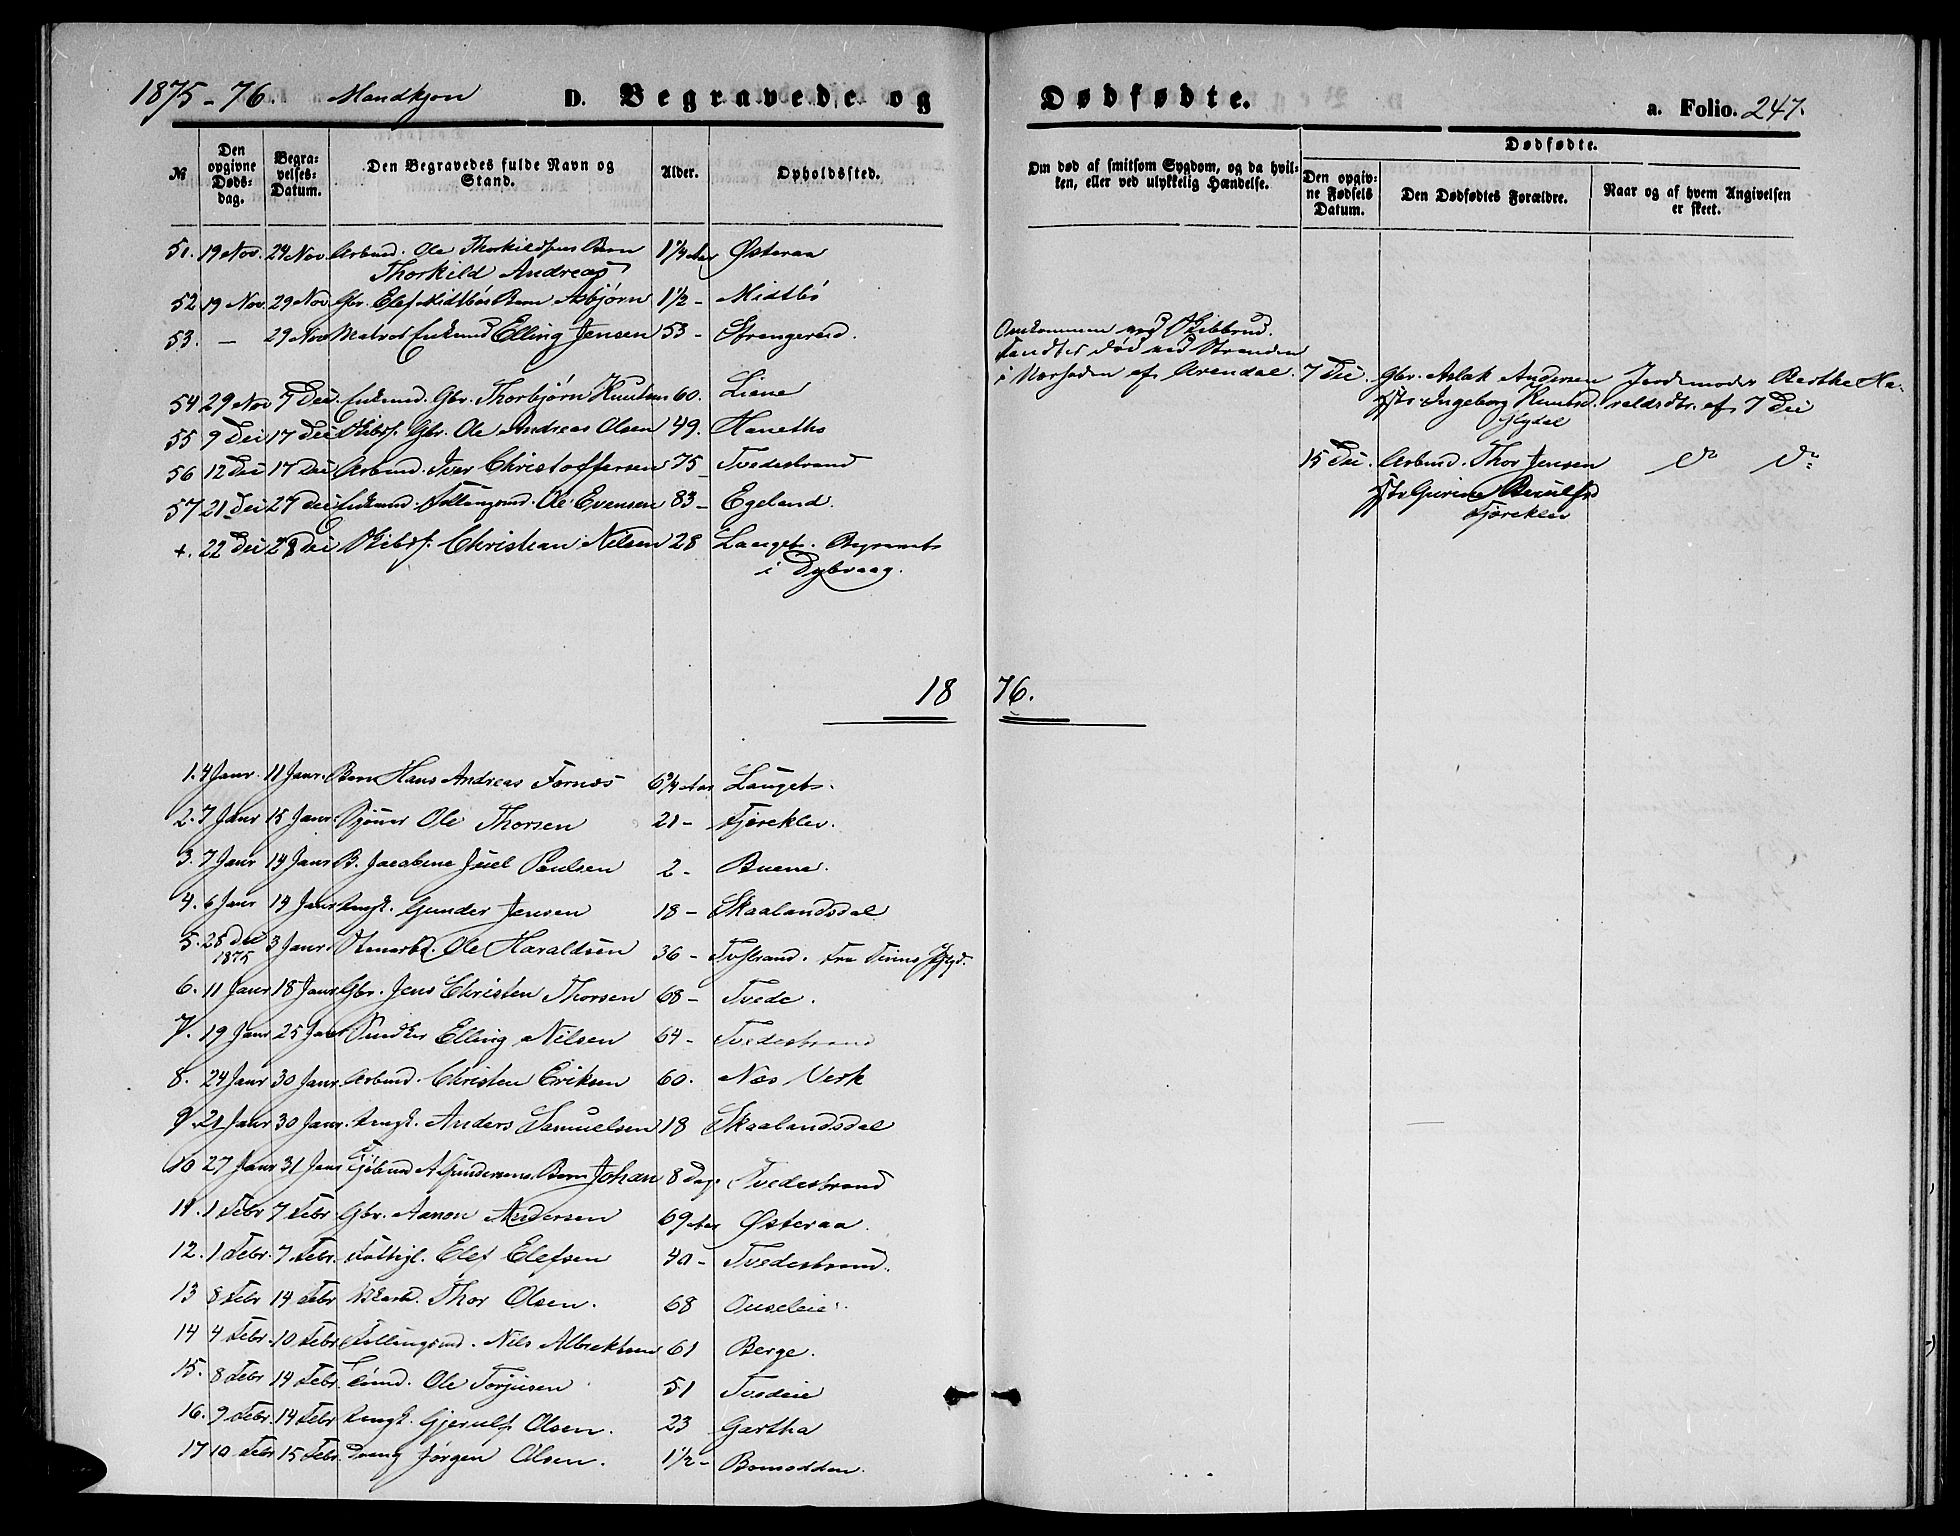 1875-76. Mandkjøn D. Begravede og Dødfødte. a. Folio. 247.
№ Den opgivne Døds-dag. Begra-velses-Datum. Den Begravedes fulde Navn og Stand. Alder. Opholdssted. Om død af smitsom Sygdom, og da hvil-ken, eller ved ulykkelig Hændelse. Dødfødte.
Den opgiv-ne Fødsels Datum. Den Dødfødtes Forældre. Naar og af hvem Angivelsen er skeet.
51. 19 Nov. 24 Nov. Arbmd. Ole Thorkildsens Barn 1 1/4 Aar Østeraa
Thorkild Andreas
52 19 Nov. 29 Nov. Gbr. Elef Midtbøs Barn Asbjørn 1 1/2 - Midtbø
53. - 29 Nov Matros Enkemd Elling Jensen 53 - Strengereid. Omkommen ved Skibbrud.
Fandtes død ved Stranden
i Nærheden af Arendal. 7 Dec. Gbr. Aslak Andersen Jordemoder Berthe Ha-
54 29 Nov 7 Dec. Enkemd. Gbr. Thorbjørn Knutsen 60. Liene Ingeborg Knutsd. raldsdtr. af 7 Dec
55 9 Dec 17 Dec Skibsf. Gbr. Ole Andreas Olsen 49. Haneths
56 12 Dec 17 Dec Arbmd. Iver Christoffersen 75 - Tvedestrand 15 Dec. Arbmd. Thor Jensen do do
57 21 Dec 27 Dec Enkemd. Ole Evensen 83 - Egeland. Gurine
Fjæreklev
+. 22 Dec 28 Dec Skibsf. Christian Nilsen 28 Langets.
i Dybvaag.
18 76.
1. 4 Janr. 11 Janr. Barn Hans Andreas Fornæs 6 3/4 Aar Langets.
2. 7 Janr 15 Janr. Ole Thorsen 21 - Fjæreklev.
3. 7 Janr 14 Janr B. Jacobine Juel Paulsen 2 - Buene.
4. 6 Janr 14 Janr Ungk. Gunder Jensen 18 - Skaalandsdal
5. 28 Dec 1875 3 Janr. Ole Haraldsen 36 - Tvstrand. Fra
6. 11 Janr 18 Janr Gbr. Jens Christen Thorsen 68 - Tvede.
7. 19 Janr 25 Janr Snedker Elling Nilsen 64 - Tvedestrand
8. 24 Janr 30 Janr. Arbmd. Christen Eriksen 60. Næs Verk
9. 21 Janr 30 Janr. Ungk. Anders Samuelsen 18 Skaalandsdal
10 27 Janr 31 Janr A Gundersens Barn Johan 8 Dage Tvedestrand
11. 1 Febr 7 Febr. Gbr. Aanon Andersen 69 Aar Østeraa.
12. 1 Febr. 7 Febr. Fattigl. Elef Elefsen 40 - Tvedestrand.
13 8 Febr 14 Febr Thor Olsen. 68
14 4 Febr. 10 Febr Nils Albrektsen 61 Berge.
15. 8 Febr 14 Febr. Ole Torjusen 51 Tvedeie
16. 9 Febr. 14 Febr Ungk. Gjerulf Olsen. 23 Gartha
17 10 Febr 15 Febr. Dreng Jørgen Olsen. 1 1/2 - Bomodden.